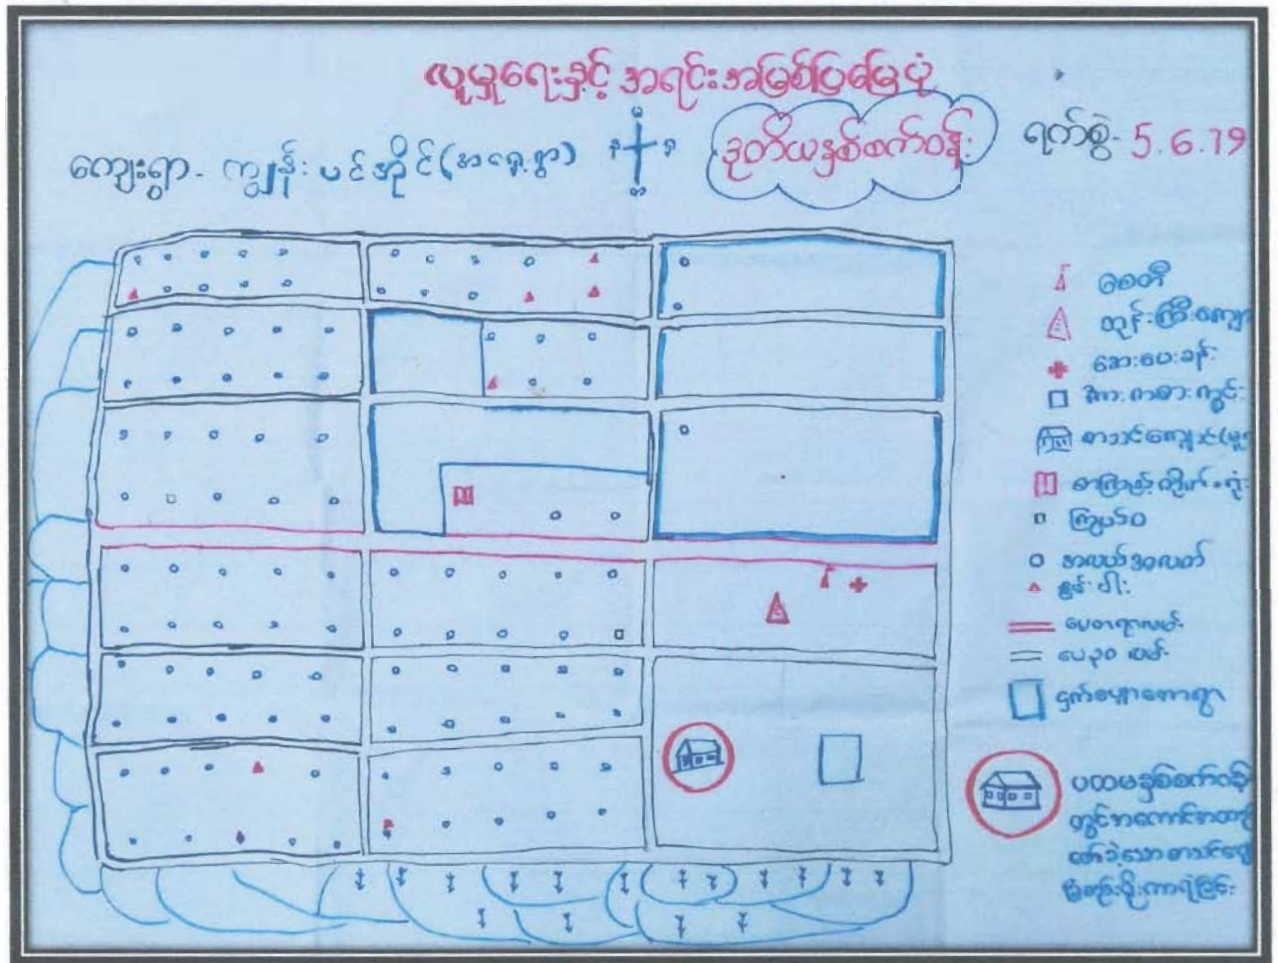 လူမှုရေးနှင့် အရင်းအမြစ်ပြမြေပုံ
ကျေးရွာ- ကျွန်းပင်အိုင်(အရှေ့ရွာ)
ဒုတိယနှစ်စက်ဝန်း
ရက်စွဲ- 5.6.19
စေတီ
ဘုန်းကြီးကျော
ဆေးပေးခန်း
အားကစားကွင်း
စာသင်ကျောင်း(မူ
စာကြည့်တိုက်+ရုံး
ကြွယ်ဝ
အလယ်အလတ်
နွမ်းပါး
ပေတရာလမ်း
ပေ၃၀ လမ်း
ပထမနှစ်စက်ဝန်
တွင်အကောင်အထည်
ဖော်ခဲ့သောစာသင်ကျော